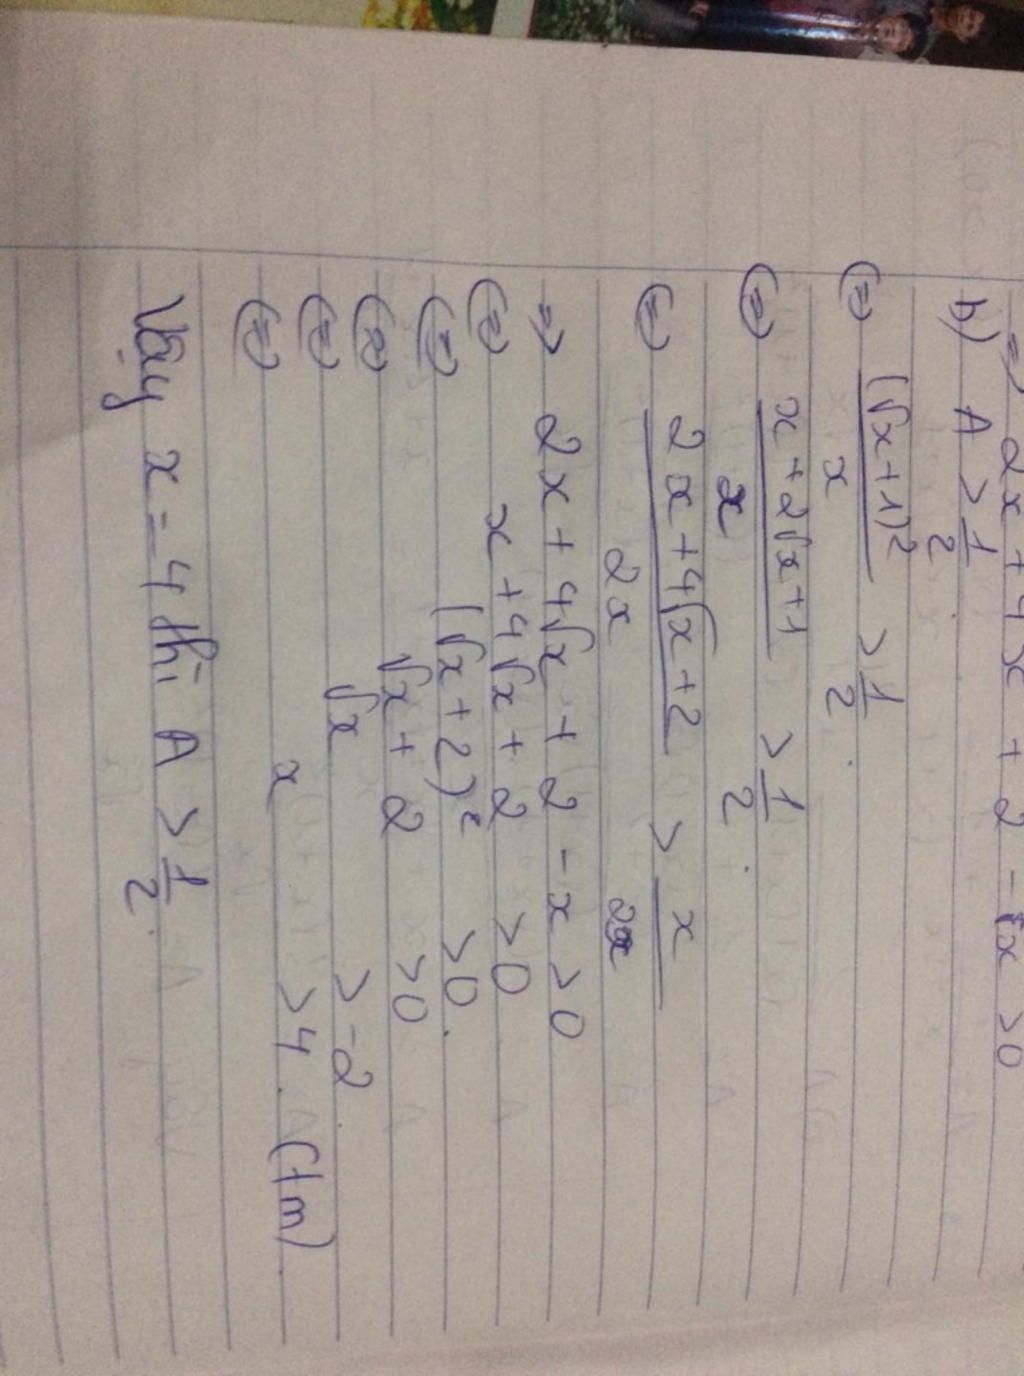 => 2x + 4√x + 2 - x > 0
b) A > 1/2
<=> (√x+1)²/x > 1/2.
<=> x+2√x+1/x > 1/2.
<=> 2x+4√x+2/2x > x/2x
=> 2x + 4√x + 2 - x > 0
<=> x + 4√x + 2 > 0
<=> (√x + 2)² > 0.
<=> √x + 2 > 0
<=> √x > -2.
<=> x > 4. (tm).
Vậy x = 4 thì A > 1/2.